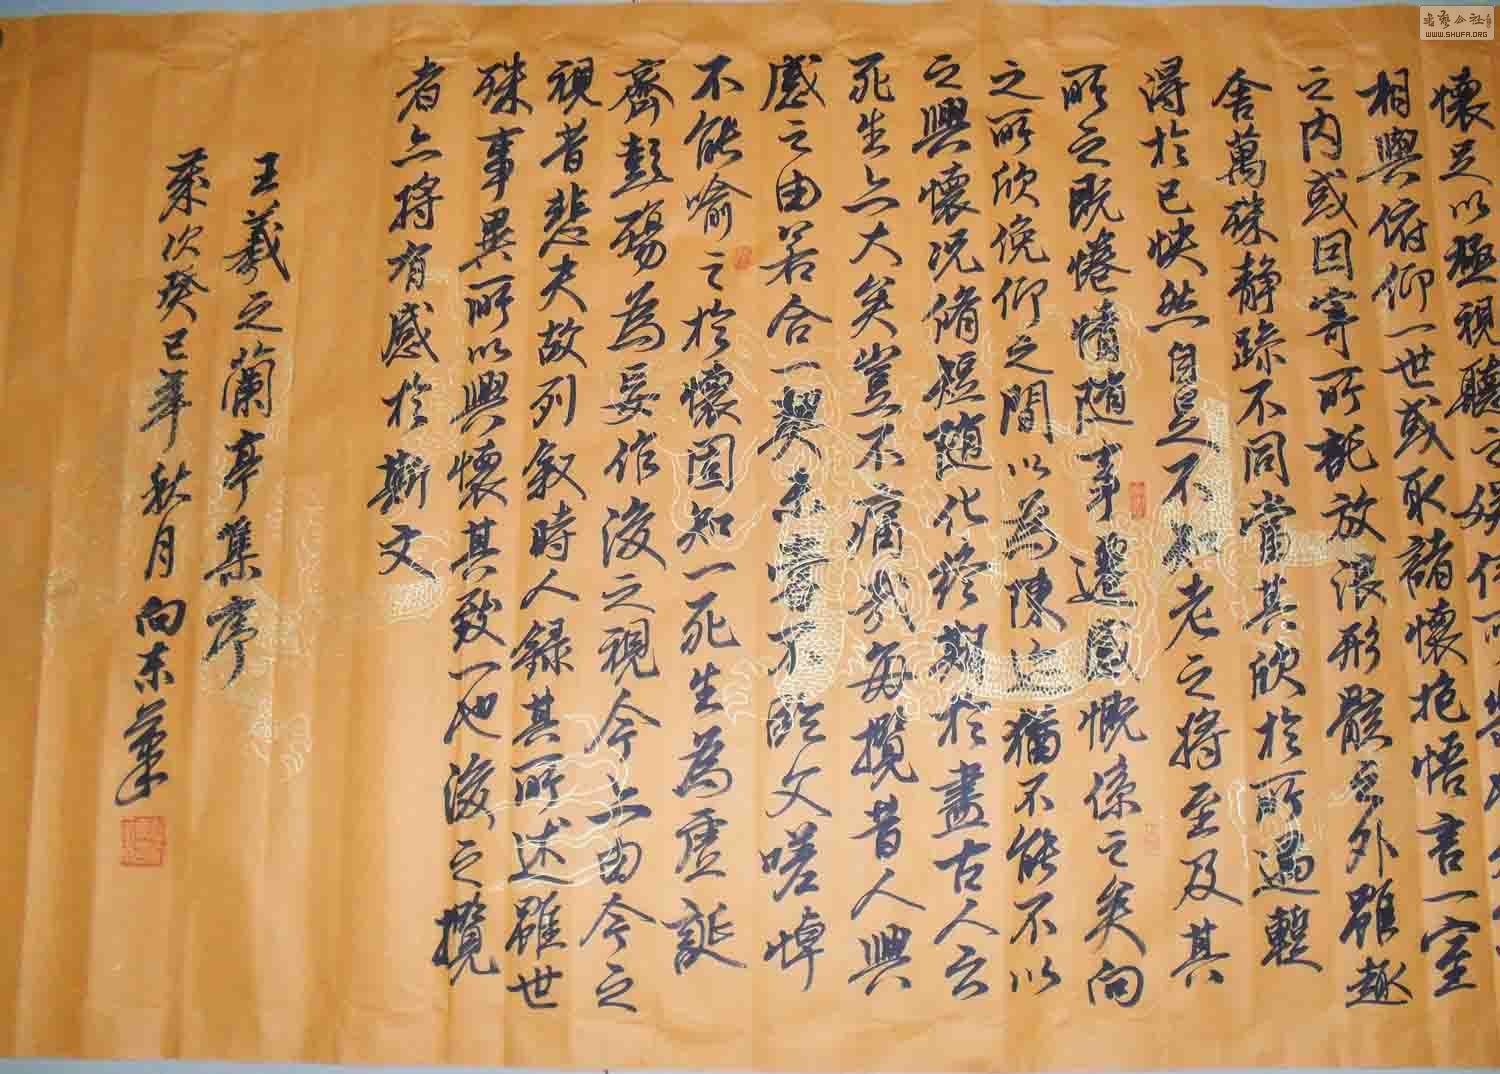 懷足以極視聽之娛信可
相與俯仰一世或取諸懷抱悟言一室
之内或因寄所託放浪形骸之外雖趣
舍萬殊静躁不同當其欣於所遇蹔
得於己快然自足不知老之將至及其
所之既惓情随事遷感慨係之矣向
之所欣俛仰之間以為陳迹猶不能不以
之興懷况脩短随化終期於盡古人云
死生亦大矣豈不痛哉每攬昔人興
感之由若合一契未嘗不臨文嗟悼
不能喻之於懷固知一死生為虛誕
齊彭殤為妄作後之視今亦由今之
視昔悲夫故列叙時人録其所述雖世
殊事異所以興懷其致一也後之攬
者亦將有感於斯文
王羲之蘭亭集序
次癸巳年秋月向东筆
WWW.SHUFA.ORG